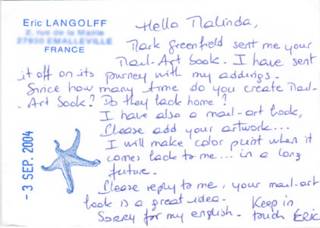 Eric LANGOLFF
2, rue de la Mairie
27930 EMALLEVILLE
FRANCE
- 3 SEP. 2004
Hello Malinda,
Mark Greenfield sent me your
Mail-Art Book. I have sent
it off on its journey with my addings.
Since how many time do you create Mail
-Art Book? Do they back home?
I have also a mail-art book,
Please add your artwork...
I will make color print when it
comes back to me... in a long
future.
Please reply to me, your mail-art
book is a great idea.
Sorry for my english.
Keep in
touch Eric